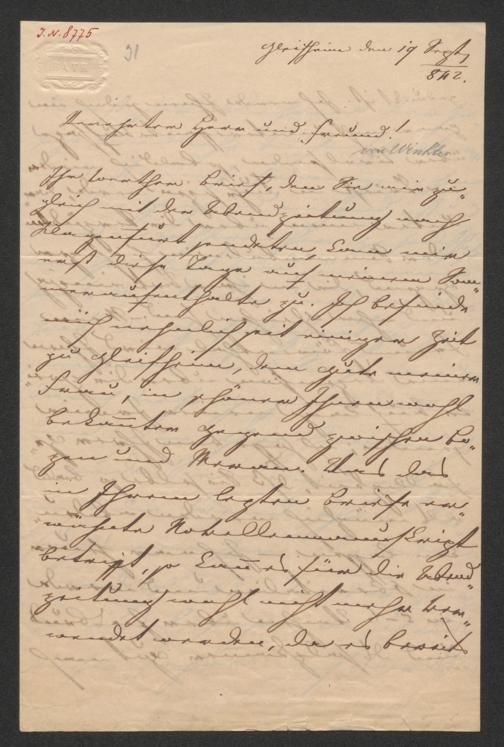 I.N. 8775
31
Gleifheim den 19 Sept
842.
Verehrter Herr und Freund!
von Winkler
Ihr werther Brief, den Sie mir zu-
gleich mit der Abendzeitung nach
Klagenfurt sendeten, kam mir
erst diese Tage auf meinem Som-
meraufenthalte zu. Ich befinde
mich nehmlich seit einiger Zeit
zu Gleifheim, dem Gute meiner
Frau, in schöner Ihnen wohl
bekannter Gegend zwischen Bo-
zen und Meran. Was das
in Ihrem letzten Briefe er-
wähnte Novellenmanuskript
betrifft, so kann es für die Abend-
zeitung wohl nicht mehr ver-
wendet werden, da es bereits